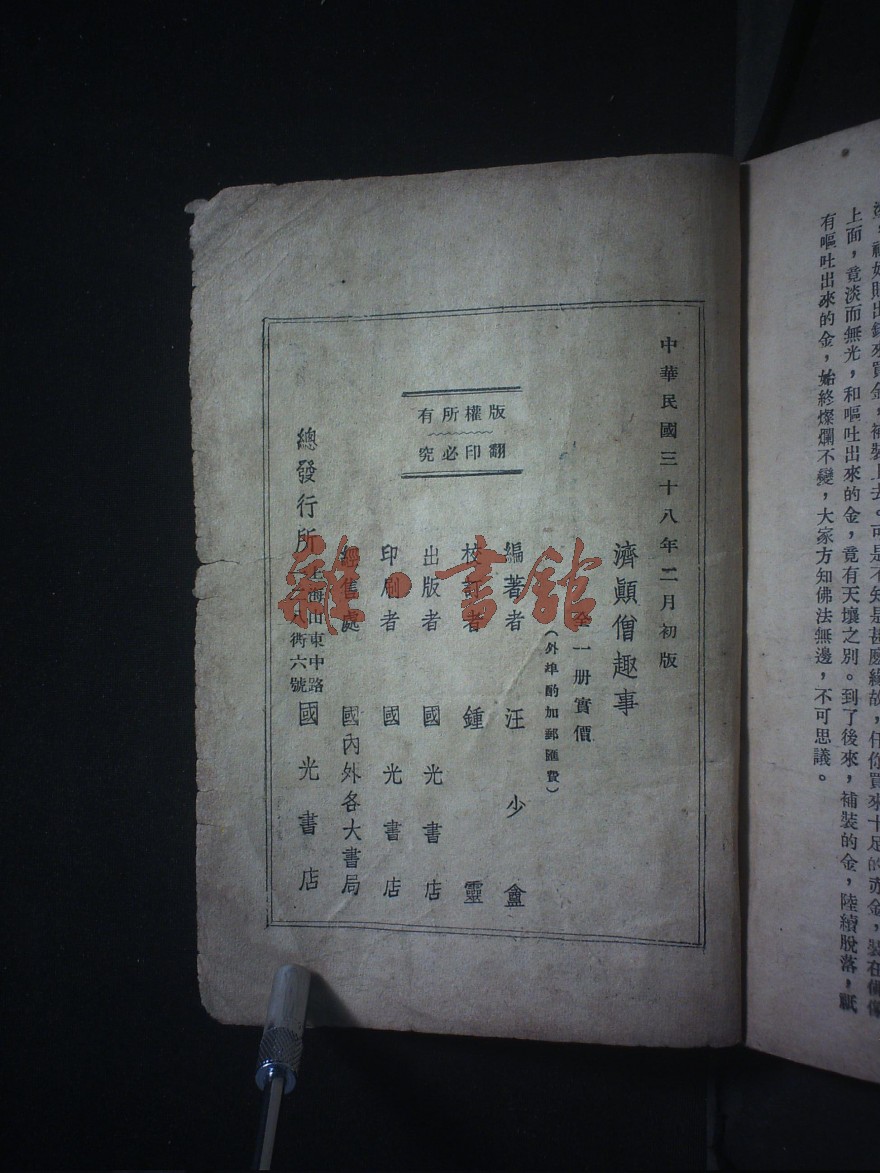 染上面，竟淡而無光，和嘔吐出來的金，竟有天壤之別。到了後來，補裝的金，陸續脫落，祇
有嘔吐出來的金，始終燦爛不變，大家方知佛法無邊，不可思議。
中華民國三十八年二月初版
濟顚僧趣事
全一册實價
（外埠酌加郵匯費）
版權所有
翻印必究
編著者 汪少盦
校訂者 鍾靈
出版者 國光書店
印刷者 國光書店
經售處 國內外各大書局
總發行所 上海山東中路
八衖六號 國光書店
雜·書館